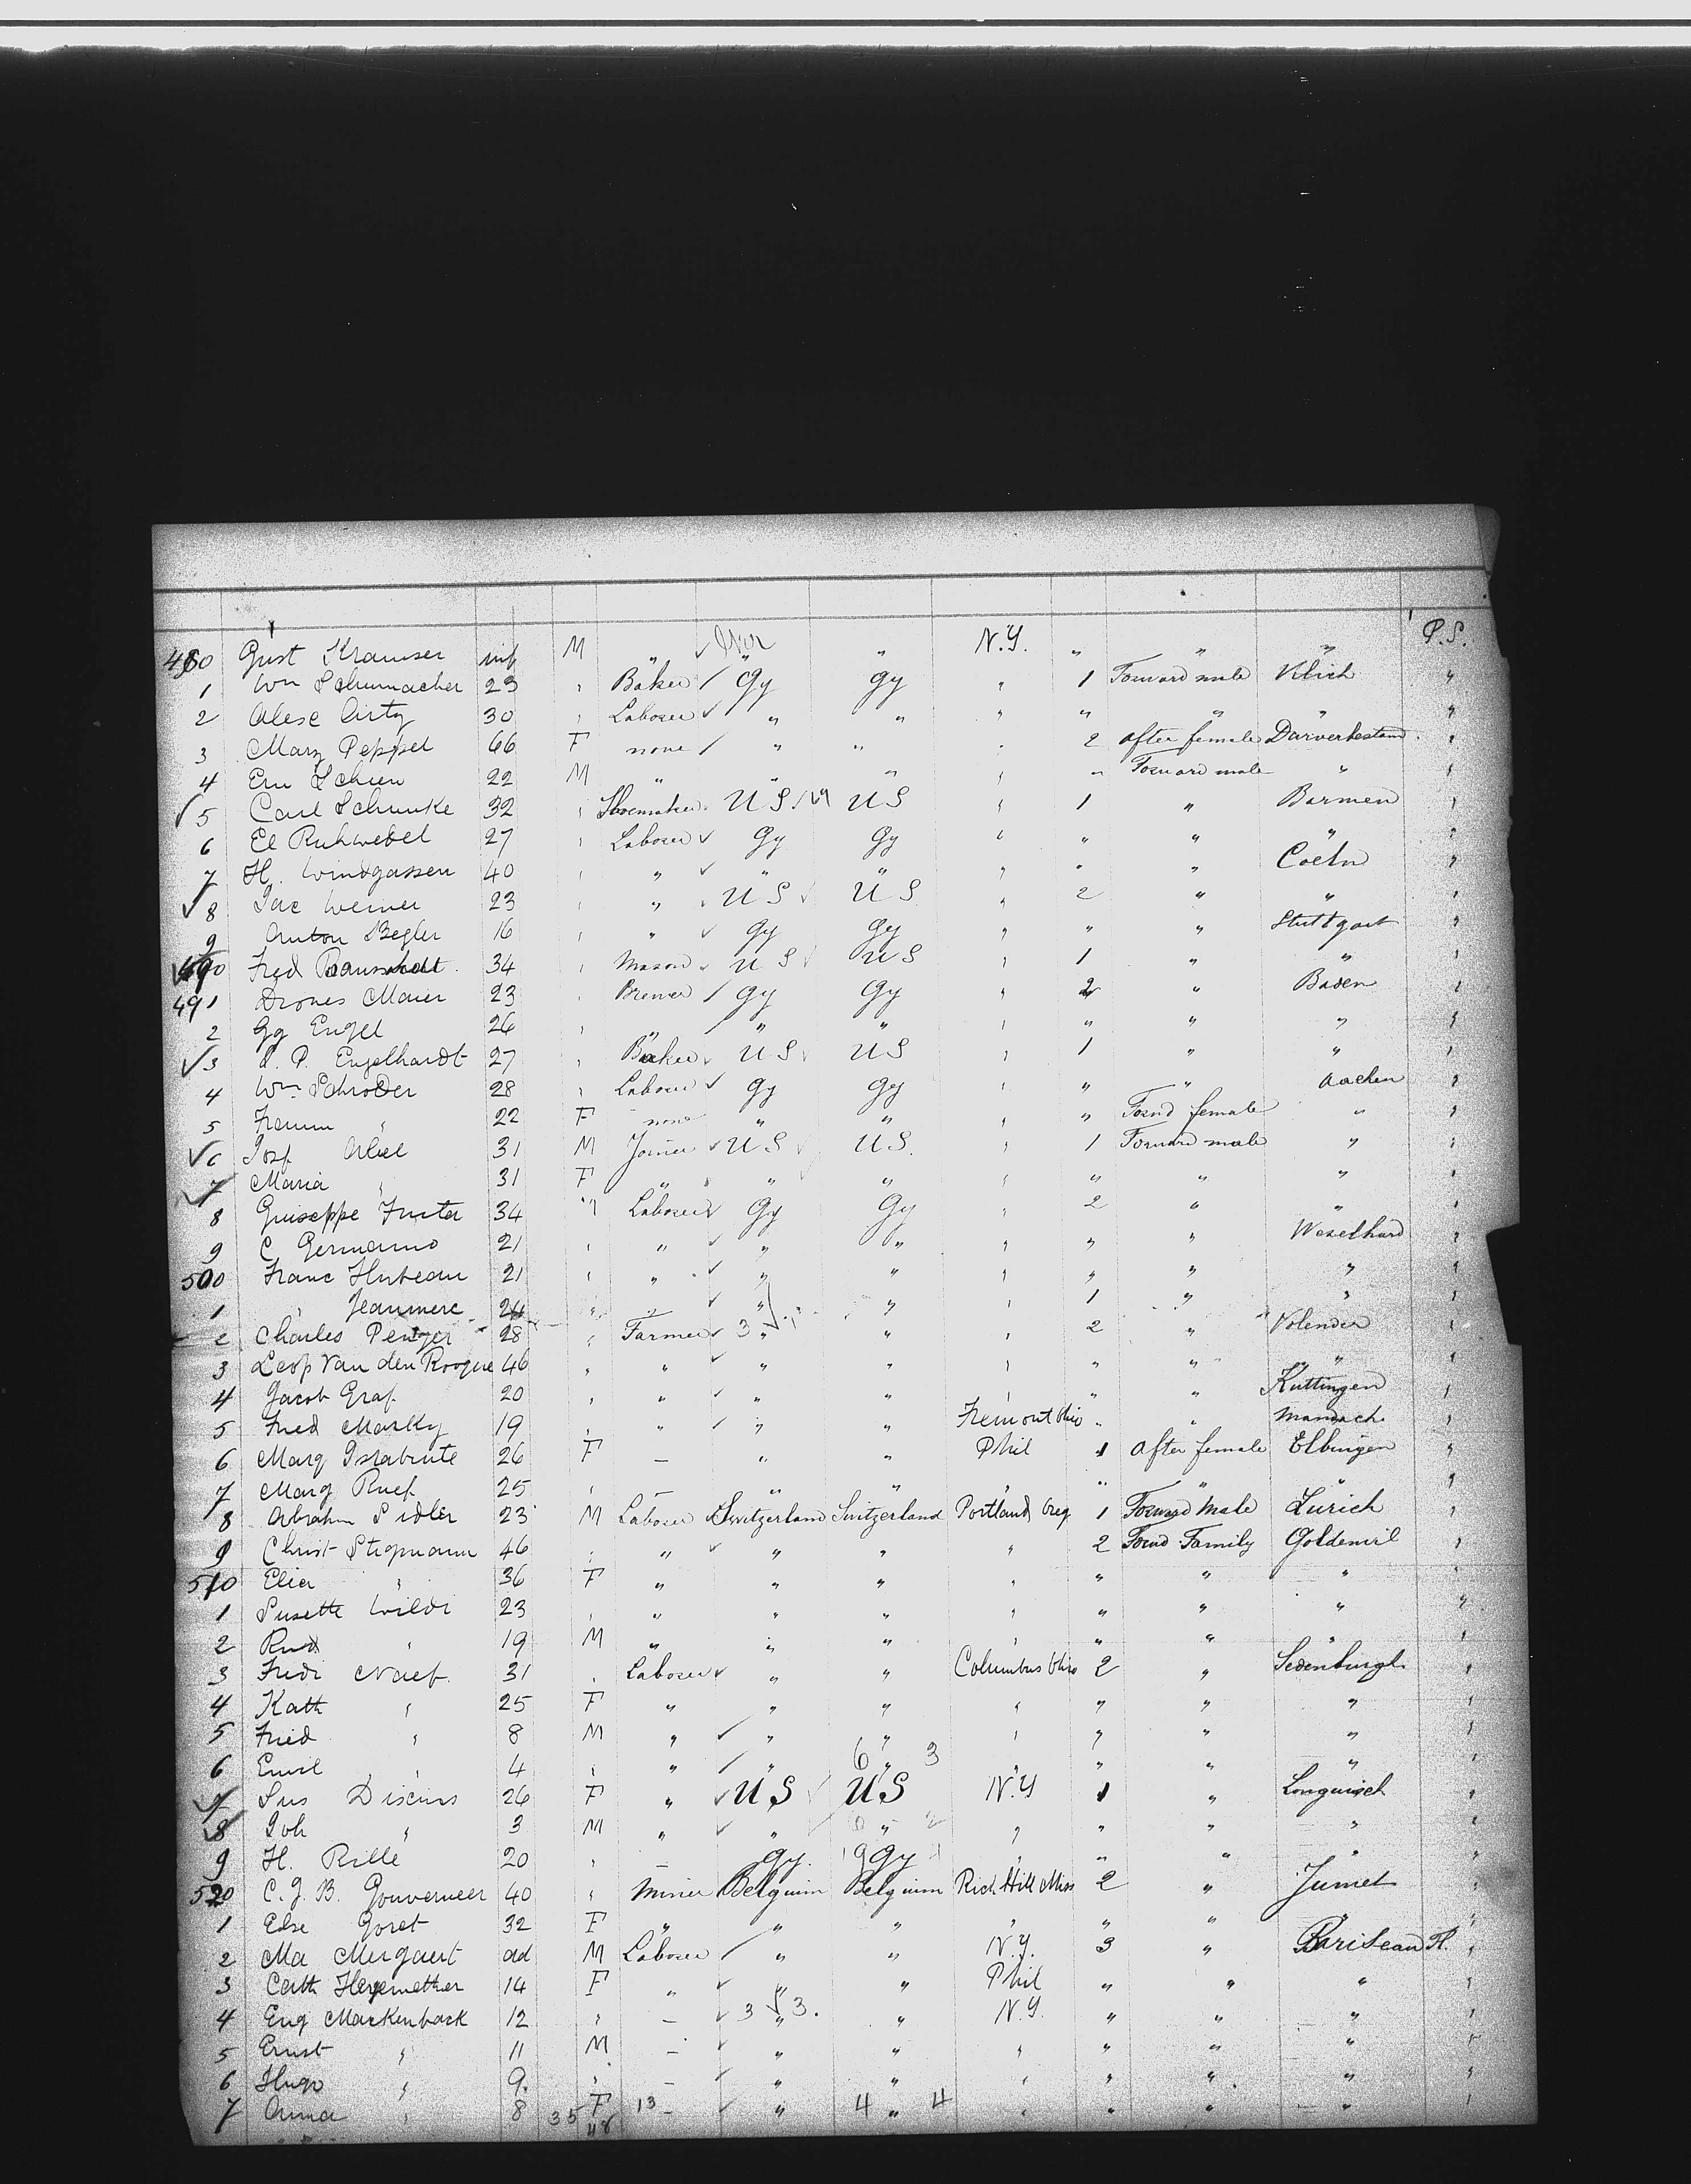 P.S.
480 Gust Kramser inf M " ✓ " N.Y. " " "
1 Wm Schumacher 23 " Baker / Gy Gy " 1 Forward male Klich "
2 Alese Cirty 30 " Laborer ✓ " " " " " " "
3 Mary Peppel 66 F none / " " " 2 After female "
4 Ern Schien 22 M " " " " " Forward male " "
✓ 5 Carl Schunke 32 " Shoemaker U S U S " 1 " Barmen "
6 El Ruhwedel 27 " Laborer ✓ Gy Gy " " " " "
7 H. Windgassen 40 " " ✓ " " " " " Coeln "
✓ 8 Jac Weiner 23 " " U S ✓ U S " 2 " " "
9 Anton Begler 16 " " ✓ Gy Gy " " " Stuttgart "
490 Fred 34 " Mason U S U S " 1 " " "
491 Maier 23 " Brewer / Gy Gy " 2 " Baden "
2 Gg Engel 26 " " / " " " " " " "
✓ 3 P. Engelhardt 27 " Baker U S U S " 1 " " "
4 Wm Schroder 28 " Laborer ✓ Gy Gy " " " Aachen "
5 " 22 F none " " " " Forwd female " "
✓ 6 Josf Abel 31 M Joiner ✓ U S U S. " 1 Forward male " "
✓ 7 Maria " 31 F " " " " " " " "
8 Guiseppe 34 " Laborer ✓ Gy Gy " 2 " " "
9 C Germanno 21 " " ✓ " " " " " Weselhard "
500 Franc Hubeau 21 " " ✓ " " " " " " "
1 " Jeanmere 24 " " ✓ " " " 1 " " "
2 Charles 28 " Farmer ✓ 3 " " " 2 " Volenden "
3 Leop Van den Rooque 46 " " ✓ " " " " " " "
4 Jacob Graf 20 " " ✓ " " " " " Kuttingen "
5 Fred Marky 19 " " ✓ " " Fremont Ohio " " Mandach "
6 Marg 26 F — " " Phil 1 After female Elbingen "
7 Marg Ruef 25 " — " " " " " " "
8 Abrahm Sidler 23 M Laborer ✓ Switzerland Switzerland Portland Oreg 1 Forward Male Zurich "
9 Christ Stegmann 46 " " ✓ " " " 2 Forwd Family Goldenvil "
510 Elier " 36 F " " " " " " " "
1 Susette Wildi 23 " " " " " " " " "
2 Rud " 19 M " " " " " " " "
3 Fridr Naef 31 " Laborer ✓ " " Columbus Ohio 2 " Sedenburgh "
4 Kath " 25 F " " " " " " " "
5 Fried " 8 M " ✓ " " " " " " "
6 Emil " 4 " " / " 6 " 3 " " " " "
✓ 7 Sus Discius 26 F " ✓ U S ✓ U S N.Y 1 " Longuisch "
✓ 8 Joh " 3 M " ✓ " " " " " " "
9 H. Rille 20 " — Gy 19 Gy " " " " "
520 C. J. B. Gouverneer 40 " Miner Belgium Belgium Rich Hill Miss 2 " Jumet "
1 Else Goret 32 F " " " " " " " "
2 Ma Mergaert ad M Laborer / " " N.Y. 3 " "
3 Cath Hegemether 14 F " ✓ " " Phil " " " "
4 Eug Mackenback 12 " — ✓ 3 " 3. " N.Y. " " " "
5 Ernst " 11 M — ✓ " " " " " " "
6 Hugo " 9. " — ✓ " " " " " " "
7 Anna " 8 35 F 13 — ✓ " 4 " 4 " " " " "
48